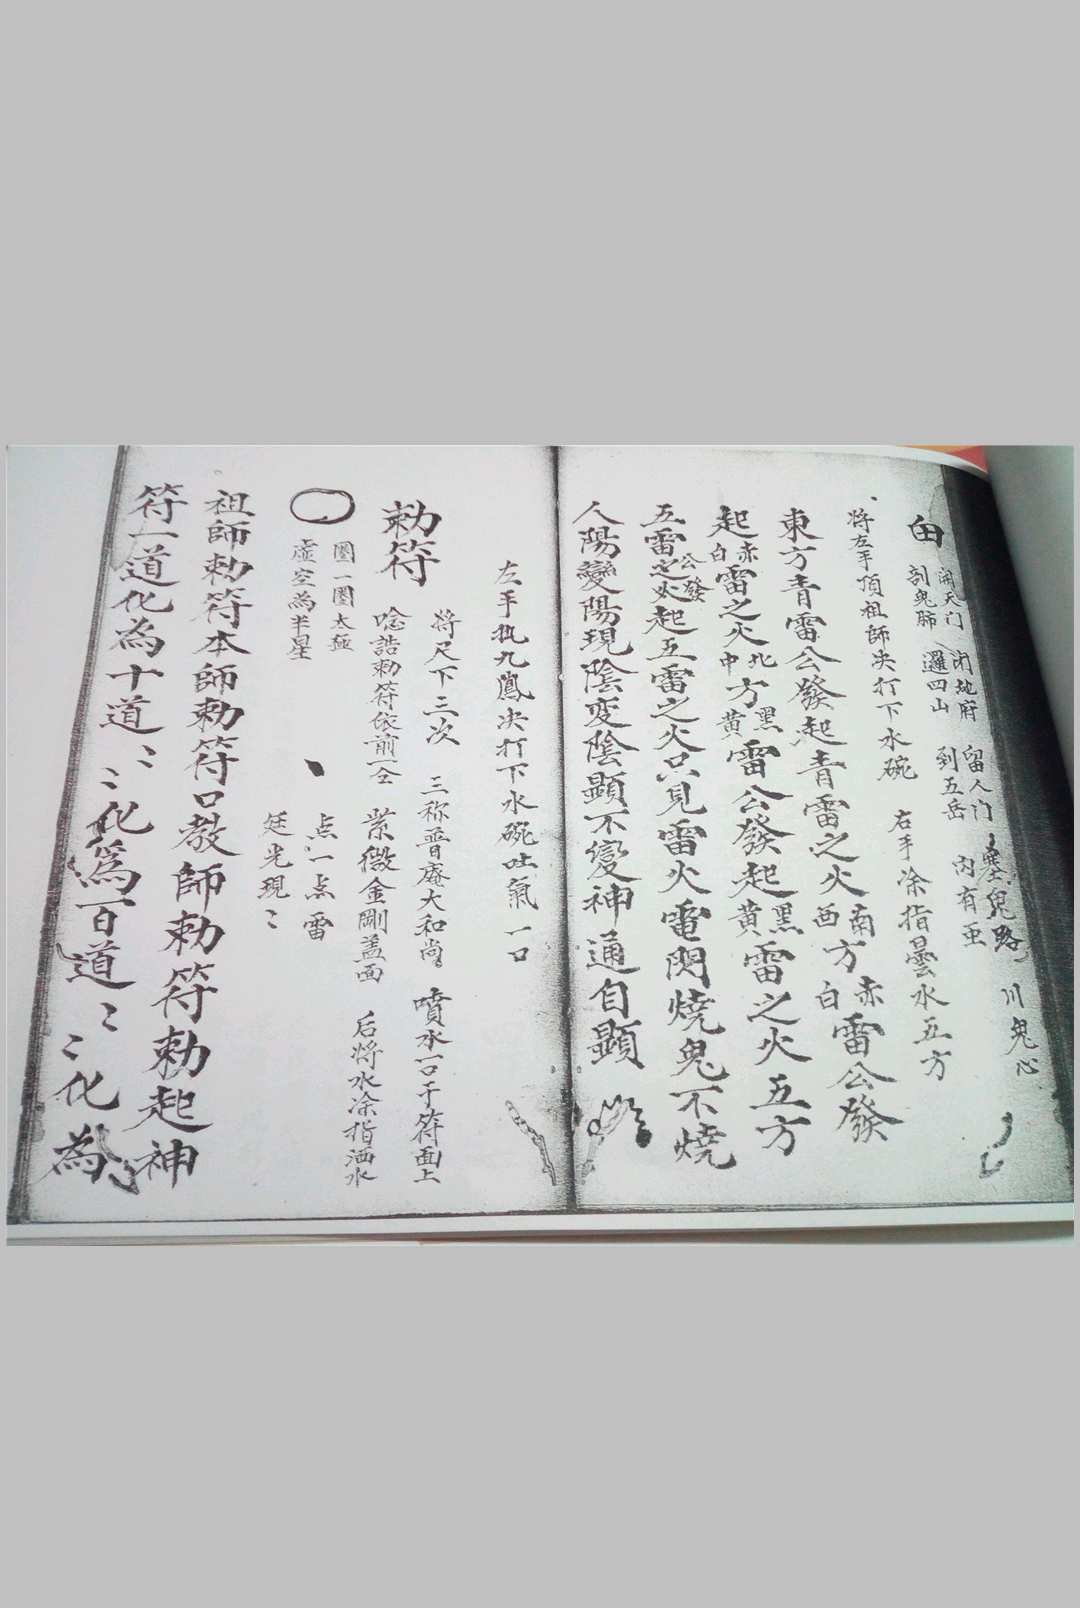 由
開天门 閉地府 留人门 塞鬼路 川鬼心
剖鬼肺 邏四山 到五岳 內有
将左手頂祖師决打下水碗 右手涂指曇水五方
東方青雷公發起青雷之火 南方赤雷公發
西 白
起赤雷之火 北方黑雷公發起黑雷之火 五方
白 中 黄 黄
五雷公發起五雷之火只見雷火電閃燒鬼不燒
之火
人陽變陽現陰変陰顯不變神通自顯
左手执九鳳决打下水碗吐氣一口
勅符
將尺下三次 三称普庵大和尚 噴水一口于符面上
唸誥勅符依前一全 紫微金剛盖面 后將水涂指洒水
圈一圈太極 点一点雷
虚空為半星 廷光現〻
祖師勅符本師勅符口教師勅符勅起神
符一道化為十道〻〻化為百道〻〻化為